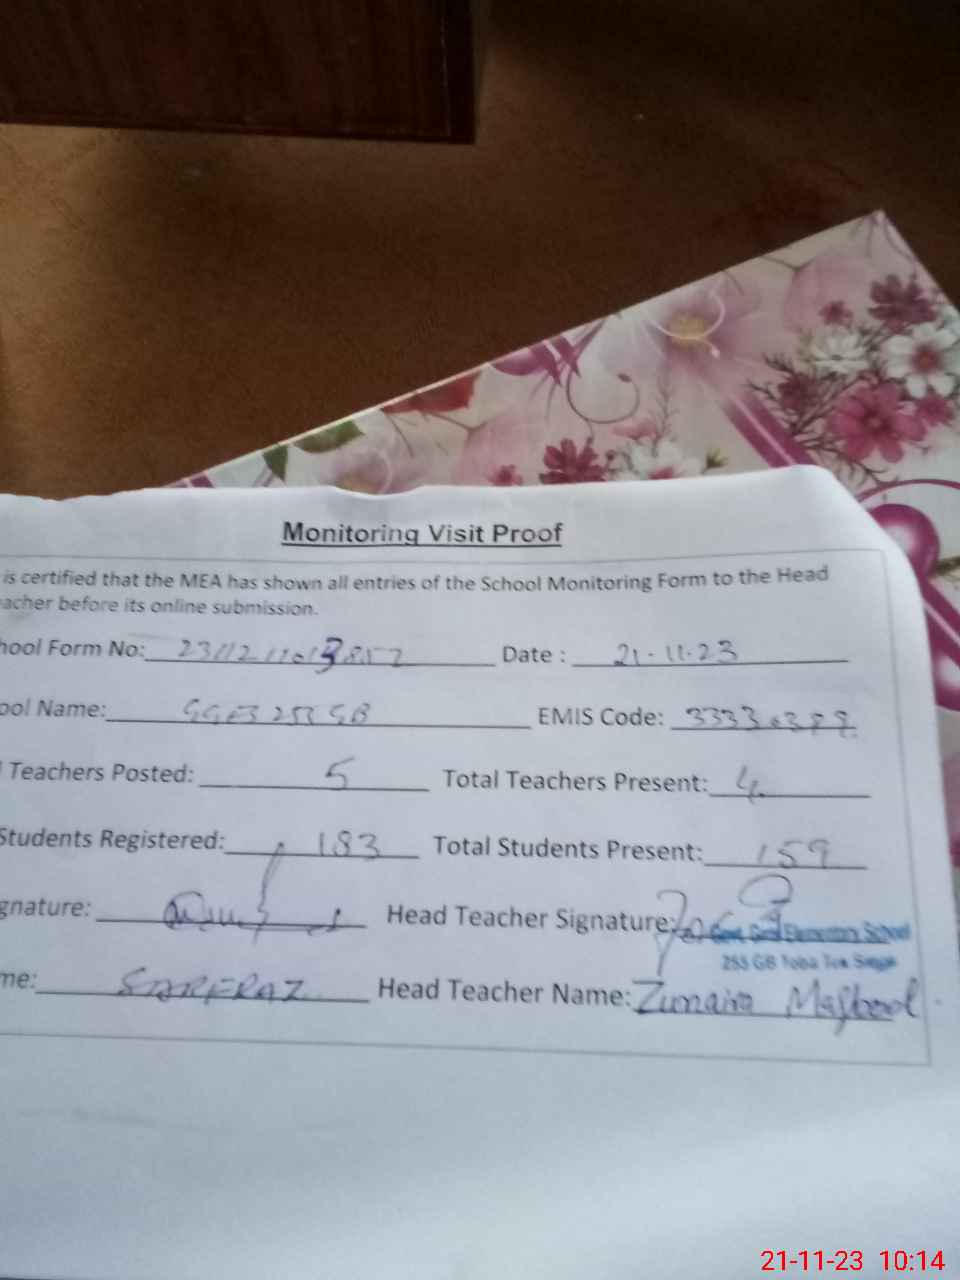 Monitoring Visit Proof
is certified that the MEA has shown all entries of the School Monitoring Form to the Head
acher before its online submission.
hool Form No: Date : 21-11-23
ool Name: EMIS Code:
Teachers Posted: 5 Total Teachers Present: 4
Students Registered: 183 Total Students Present: 159
gnature: Head Teacher Signature:
Govt. Girls Elementary School
255 GB Toba Tek Singh
me: SARFRAZ Head Teacher Name: Zunaira Maqbool
21-11-23 10:14